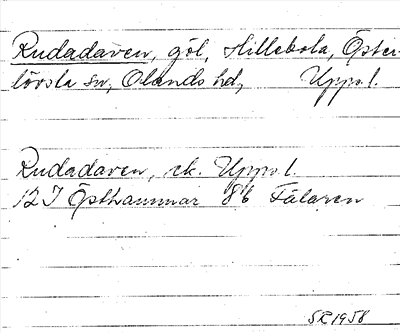 Rudadaven, göl, Hillebola, Öster-
lövsta sn, Olands hd, Uppl.
Rudadaven, ek. Uppl.
12 I Östhammar 8b Fälaren
SR 1958